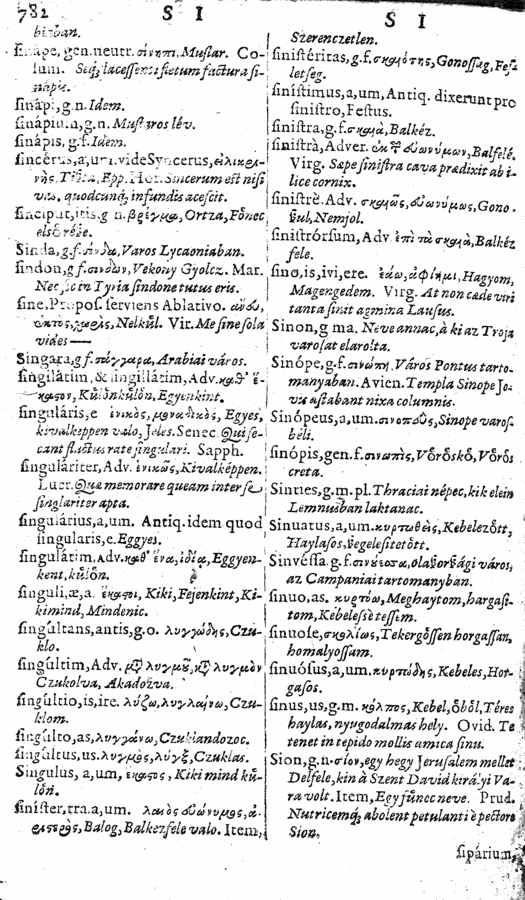 782 S I
S I
bizban.
sinápe, gen. neutr. σίνηπι, Mustar. Co-
lum. Seq; lacessenti fletum factura si-
napis.
sinápi, g.n. Idem.
sinápium, g.n. Mustáros lév.
sinápis, g.f. Idem.
sincérus, a, um. vide Syncerus,
Hor. Sincerum est nisi
vas, quodcunq; infundis acescit.
sinciput, itis, g n. βρέγμα, Ortza, Főnec
első része.
Sinda, g.f. σίνδα, Varos Lycaoniaban.
sindon, g.f. σινδων, Vekony Gyolcz. Mar.
Nec sic in Tyria sindone tutus eris.
sine, Præpos. serviens Ablativo. ἄνευ,
Nelkűl. Vir. Me sine sola
vides —
Singara, g f. σίγγαρα, Arabiai város.
singilātim, & singillátim, Adv. καθ' ἕ-
καστον, Kűlőnkűlőn, Egyenkint.
singuláris, e ἑνικὸς, μοναδικὸς, Egyes,
kivalkeppen valo, Jeles. Senec. Qui se-
cant fluctus rate singulari. Sapph.
singuláriter, Adv. ἑνικῶς, Kivalképpen.
Lucr. Quæ memorare queam inter se
singlariter apta.
singulárius, a, um. Antiq. idem quod
singularis, e. Eggyes.
singulátim, Adv. καθ' ἕνα, ἰδίᾳ, Eggyen-
kent, kűlőn.
singuli, æ, a. ἕκαστοι, Kiki, Fejenkint, Ki-
kimind, Mindenic.
singúltans, antis, g.o. λυγγώδης, Czu-
klo.
singúltim, Adv. μετὰ λυγμοῦ, κατὰ λυγμὸν
Czukolva, Akadozva.
singúltio, is, ire. λύζω, λυγγαίνω, Czu-
klom.
singúlto, as, λυγγάνω, Czuklandozoc.
singúltus, us. λυγμὸς, λύγξ, Czuklas.
Singulus, a, um, ἕκαστος, Kiki mind kű-
lőn.
siníster, tra, a, um. λαιὸς εὐώνυμος, ἀ-
ριστερὸς, Balog, Balkezfele valo. Item,
Szerenczetlen.
sinistéritas, g.f. σκαιότης, Gonossag, Fes-
letseg.
sinístimus, a, um, Antiq. dixerunt pro
sinistro, Festus.
sinistra, g.f. σκαιὰ, Balkéz.
sinistrà, Adver. ἐκ τῶν εὐωνύμων, Balfelé.
Virg. Sæpe sinistra cava prædixit ab i-
lice cornix.
sinistrè. Adv. σκαιῶς, εὐωνύμως, Gono-
szul, Nemjol.
sinistrórsum, Adv ἐπὶ τὰ σκαιὰ, Balkéz
fele.
sino, is, ivi, ere. ἐάω, ἀφίημι, Hagyom,
Magengedem. Virg. At non cæde viri
tanta sinit agmina Lausus.
Sinon, g ma. Neve annac, à ki az Troja
varosat elarolta.
Sinópe, g.f. σινώπη, Város Pontus tarto-
manyaban. Avien. Templa Sinope Jo-
vis astabant nixa columnis.
Sinópeus, a, um. σινοπεὺς, Sinope varos-
beli.
sinópis, gen. f. σινωπὶς, Vőrőskő, Vőrős
creta.
Sinties, g.m. pl. Thraciai népec, kik elein
Lemnusban laktanac.
Sinuatus, a, um. κυρτωθεὶς, Kebelezőtt,
Haylasos, végelesitetőtt.
Sinvéssa g.f. σινύεσσα, olaszországi város,
az Campaniai tartomanyban.
sinuo, as. κυρτόω, Meghaytom, hargasi-
tom, Kebelesse teszem.
sinuose, σκολίως, Tekergőssen horgassan,
homalyossam.
sinuósus, a, um. κυρτώδης, Kebeles, Hor-
gasos.
sinus, us, g.m. κόλπος, Kebel, őből, Téres
haylas, nyugodalmas hely. Ovid. Te
tenet in tepido mollis amica sinu.
Sion, g.n. σίον, egy hegy Jerusalem mellet
Delfele, kin à Szent David kirá'yi Va-
ra volt. Item, Egy fűnec neve. Prud.
Nutricemq; abolent petulanti è pectore
Sion.
sipárium,